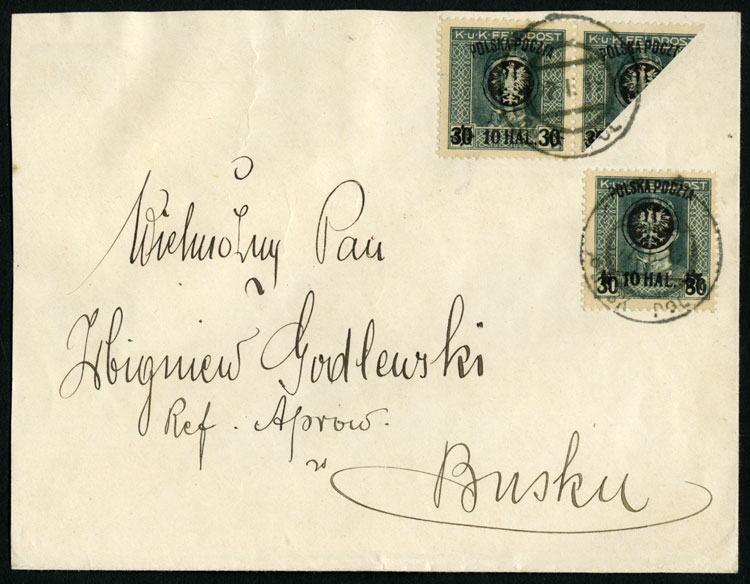 K.u.K. FELDPOST
POLSKA POCZTA POLSKA POCZTA
30 10 HAL. 30
K.u.K. FELDPOST
POLSKA POCZTA
30 10 HAL. 30
Wielmożny Pan
Zbigniew Godlewski
Ref. Aprow.
w Busku